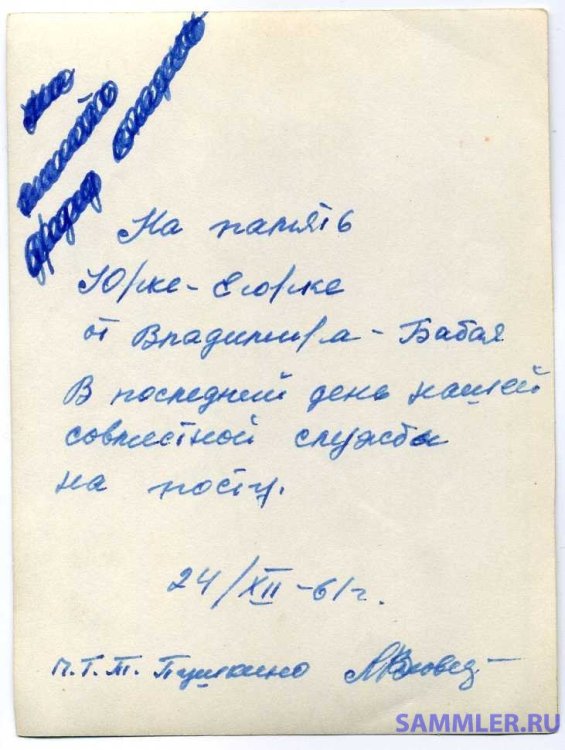 На память
Юрке-Егорке
от Владимира-Бабая
В последний день нашей
совместной службы
на посту.
24/XII-61г.
п.г.т. Пушкино
SAMMLER.RU